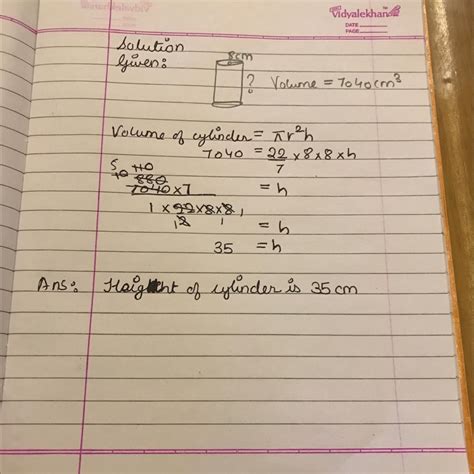 Vidyalekhan
DATE
PAGE
Solution
Given:
8cm
? Volume = 7040cm³
Volume of cylinder = πr²h
7040 = 22/7 × 8 × 8 × h
5
10 880 110
7040 × 7 = h
1 × 22 × 8 × 8 1
1 = h
35 = h
Ans: Height of cylinder is 35 cm